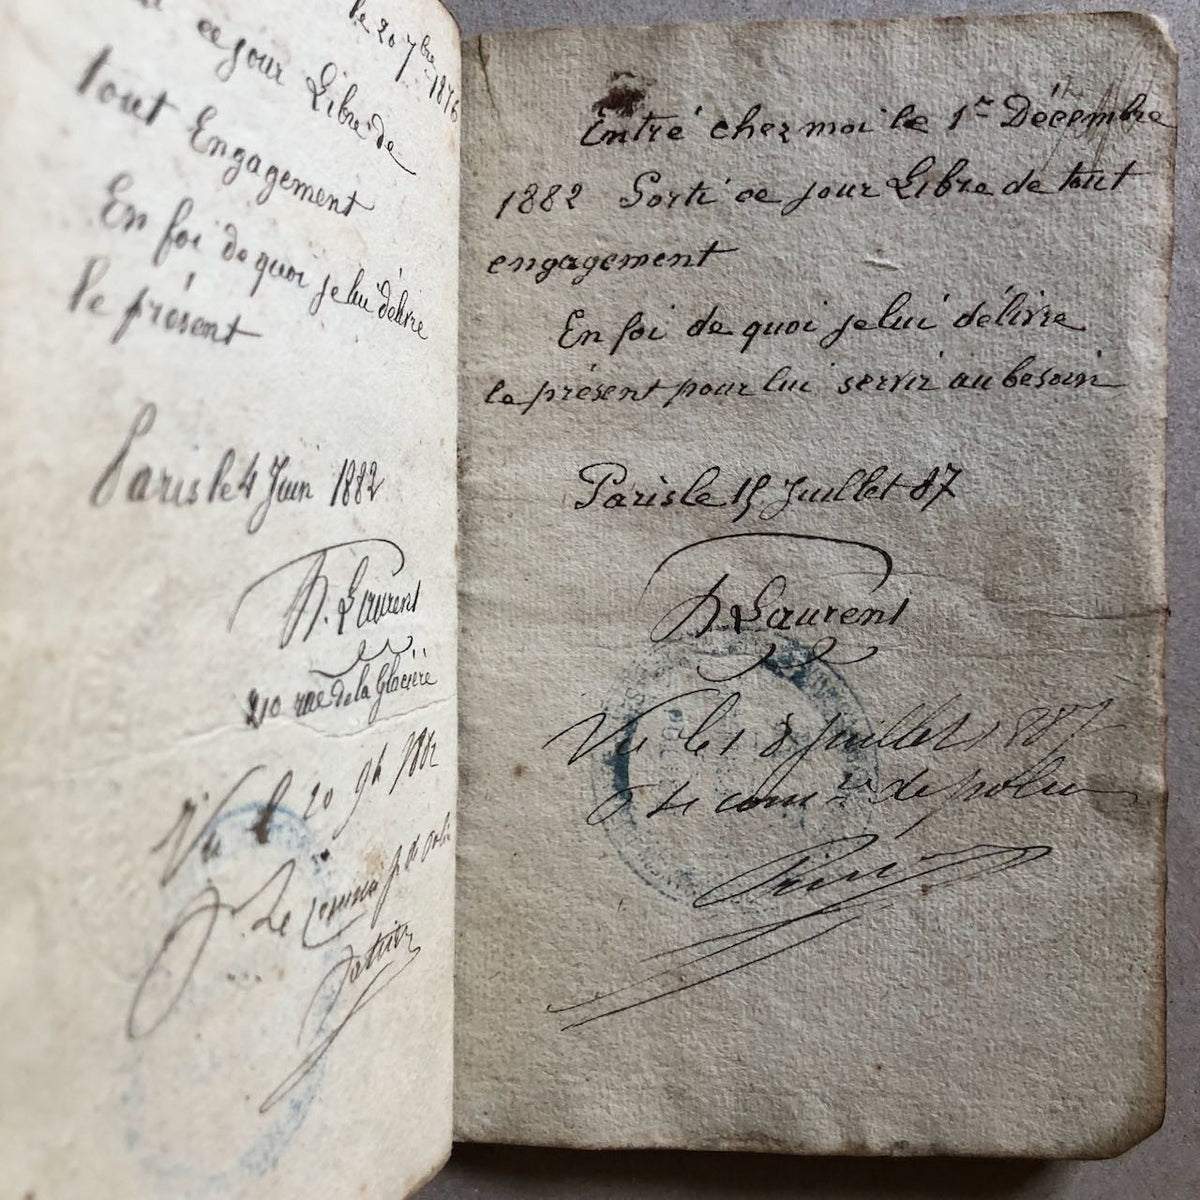 le 20 7bre 1876
ce jour Libre de
tout Engagement
En foi de quoi je lui délivre
le présent
Paris le 4 Juin 1882
Laurent
210 rue de la Glacière
Vu le 20 9bre 1882
Le
Entré chez moi le 1er Décembre
1882 Sorti ce jour Libre de tout
engagement
En foi de quoi je lui délivre
le présent pour lui servir au besoin
Paris le 15 Juillet 87
Laurent
Vu le 18 Juillet 1887
Le comre de police